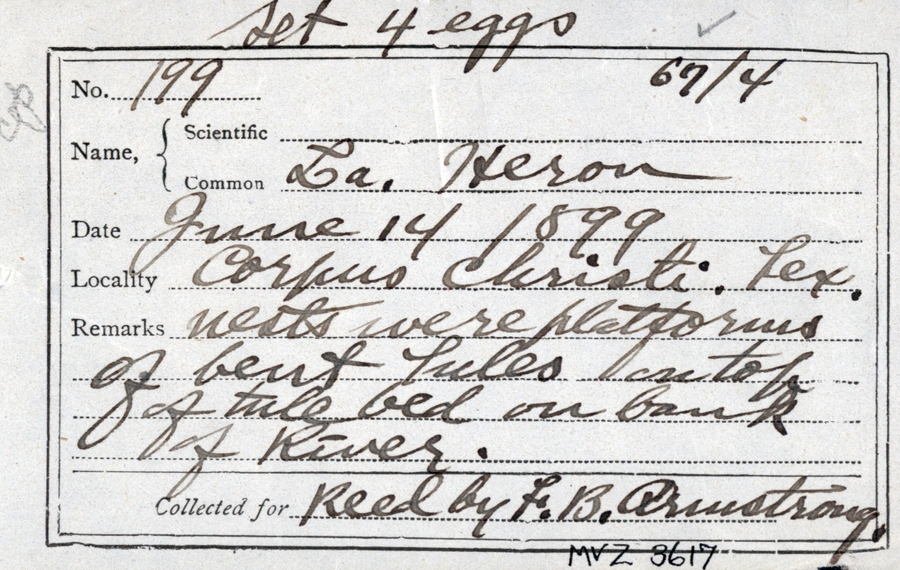 Set 4 eggs
No. 199 67/4
Name, Scientific
Common La. Heron
Date June 14 1899
Locality Corpus Christi. Tex.
Remarks nests were platforms
of bent Tules on top
of tule bed on bank
of River.
Collected for Reed by F. B. Armstrong.
MVZ 3617